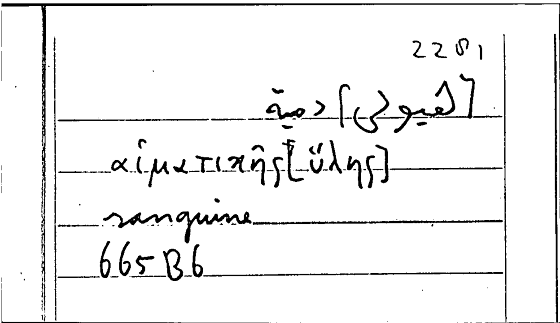 2281
[الهيولى] دمية
αἱματικῆς [ὕλης]
sanguine
665 B6